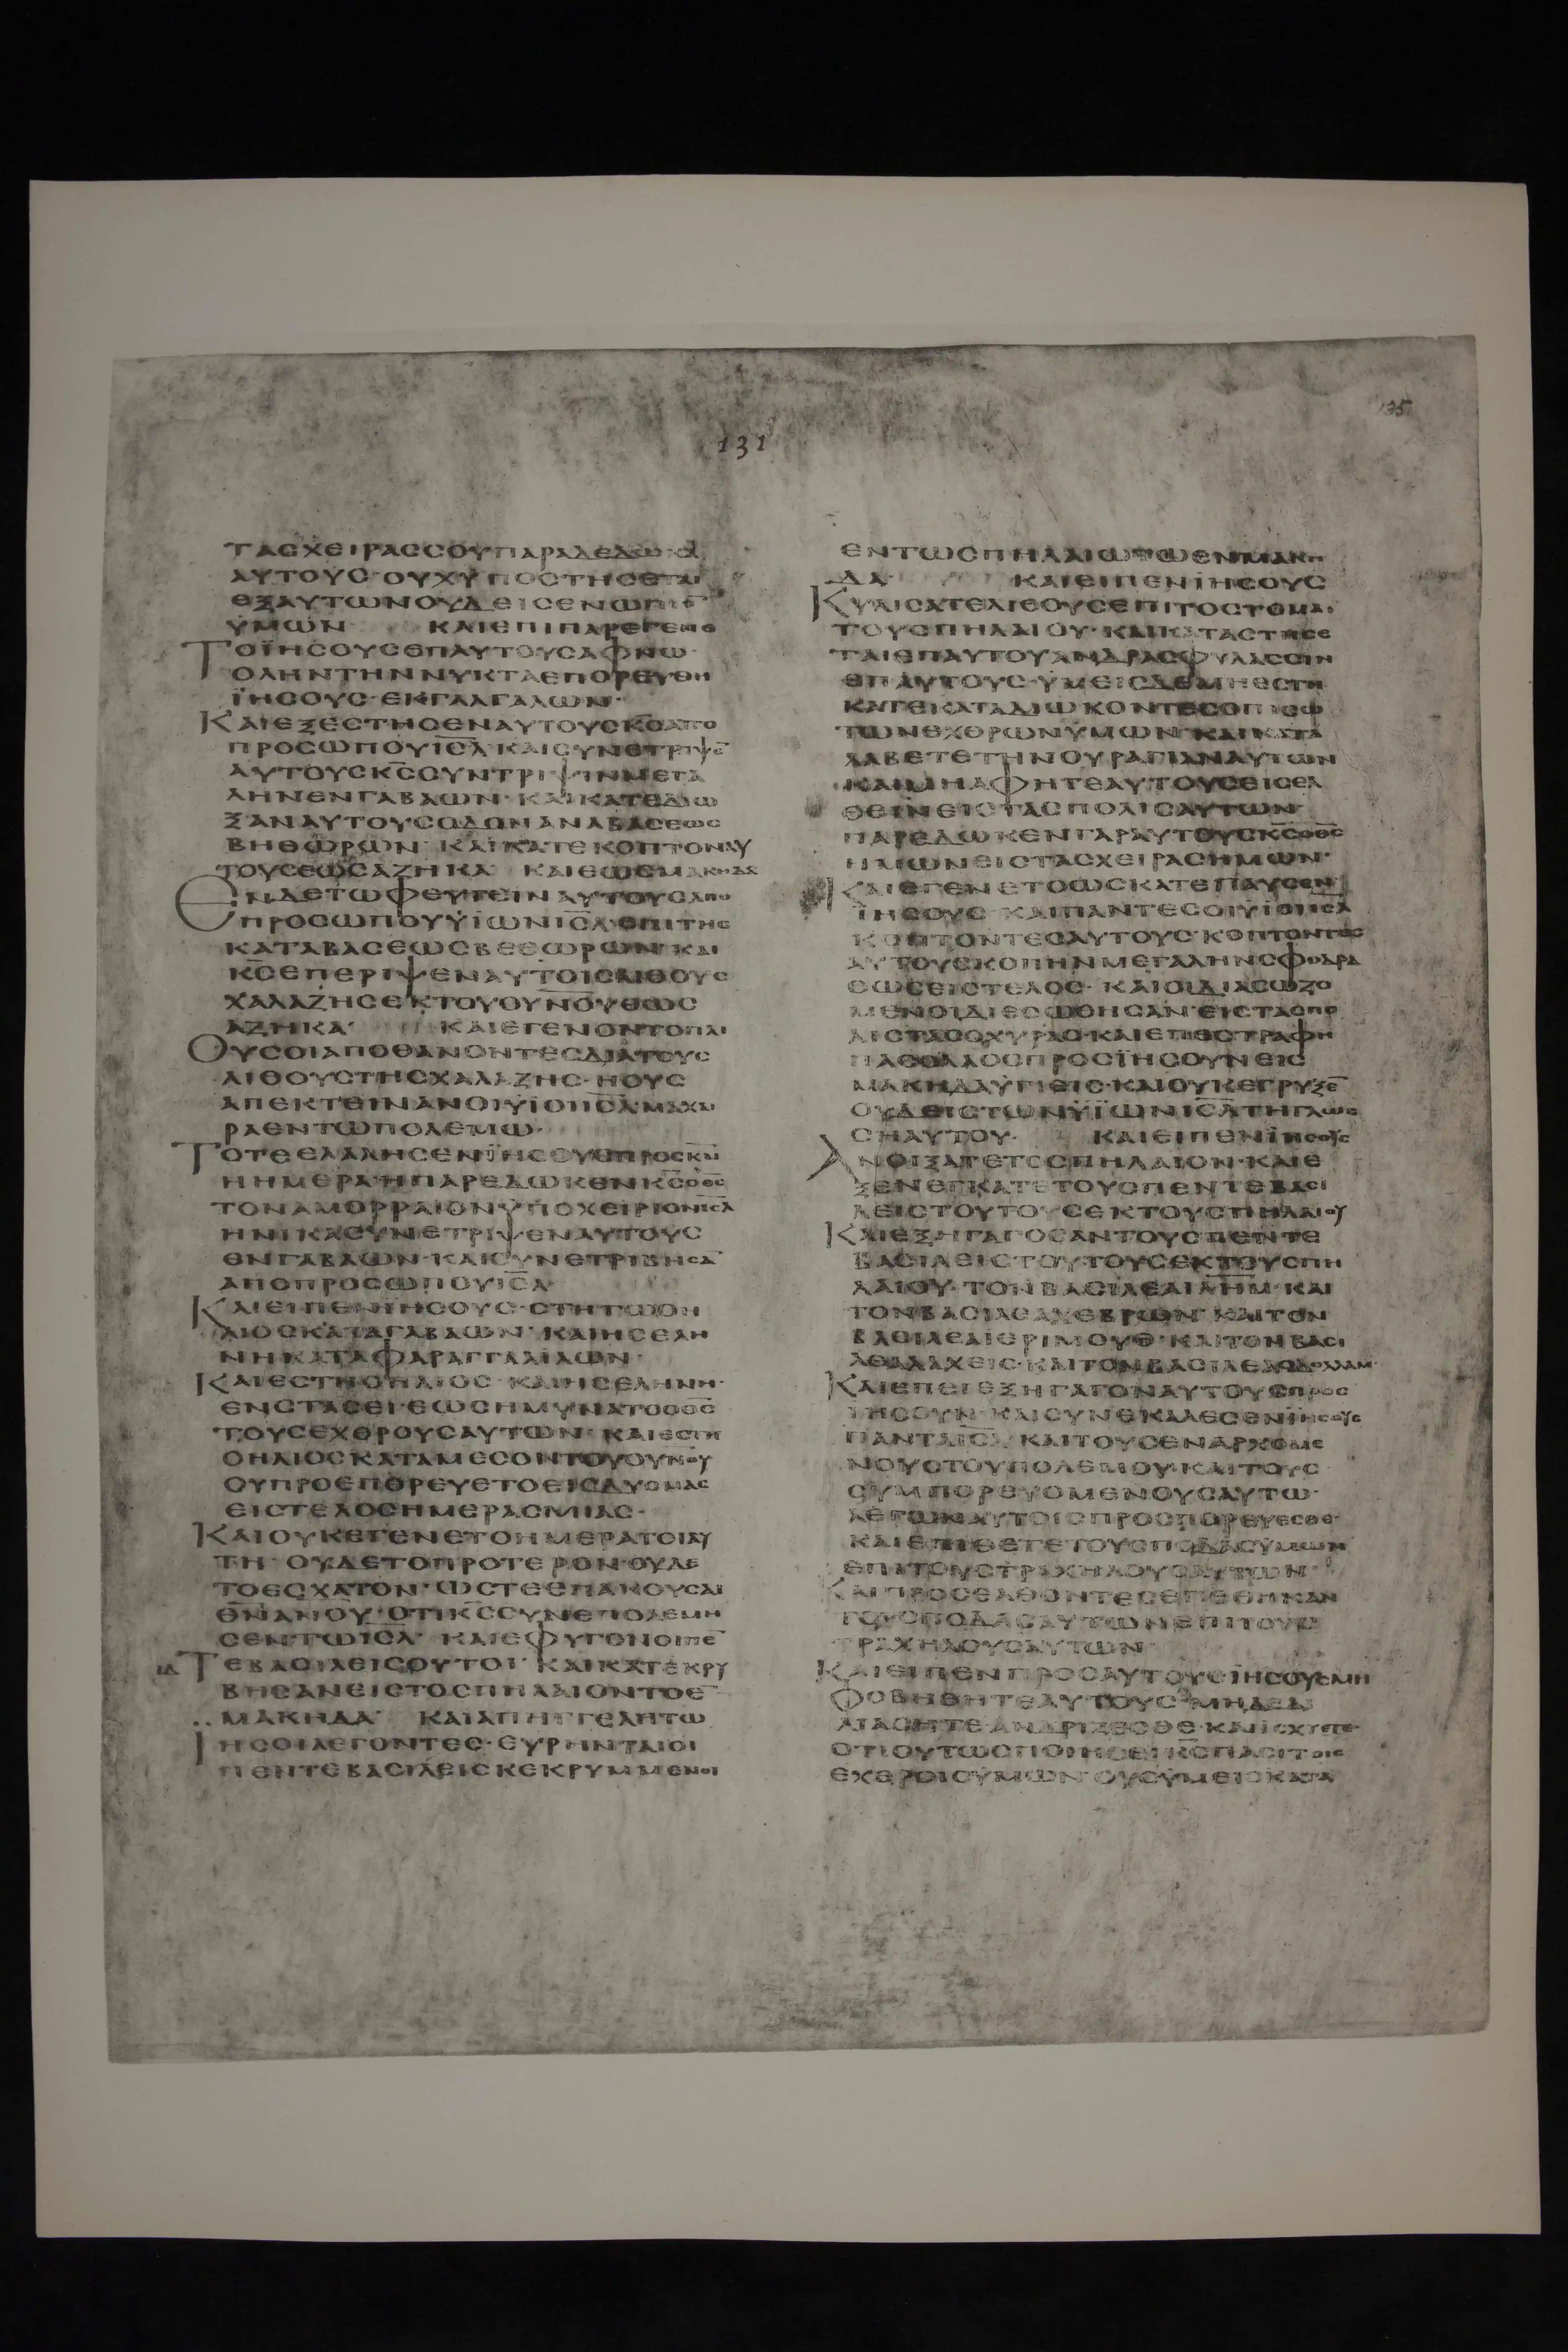 131
135
ΤΑСΧΕΙΡΑССΟΥΠΑΡΑΔΕΔΩΚΑ
ΑΥΤΟΥС·ΟΥΧΥΠΟСΤΗСΕΤΑΙ
ΕΞΑΥΤΩΝΟΥΔΕΙСΕΝΩΠΙΟ̅
ΫΜΩΝ· ΚΑΙΕΠΙΠΑΡΕΓΕΝΟ
ΤΟΪΗСΟΥСΕΠΑΥΤΟΥСΑΦΝΩ·
ΟΛΗΝΤΗΝΝΥΚΤΑΕΠΟΡΕΥΘΗ
ΪΗСΟΥС·ΕΚΓΑΛΓΑΛΩΝ·
ΚΑΙΕΞΕСΤΗСΕΝΑΥΤΟΥСΚ̅С̅ΑΠΟ
ΠΡΟСΩΠΟΥΙ̅С̅Λ̅ΚΑΙСΥΝΕΤΡΙΨΕ̅
ΑΥΤΟΥСΚ̅С̅СΥΝΤΡΙΨΙΝΜΕΓΑ
ΛΗΝΕΝΓΑΒΑΩΝ·ΚΑΙΚΑΤΕΔΙΩ
ΞΑΝΑΥΤΟΥСΟΔΟΝΑΝΑΒΑСΕΩС
ΒΗΘΩΡΩΝ·ΚΑΙΚΑΤΕΚΟΠΤΟΝΑΥ
ΤΟΥСΕΩСΑΖΗΚΑ ΚΑΙΕΩСΜΑΚΗΔΑ
ΕΝΔΕΤΩΦΕΥΓΕΙΝΑΥΤΟΥСΑΠΟ
ΠΡΟСΩΠΟΥΫΪΩΝΙ̅С̅Λ̅·ΕΠΙΤΗС
ΚΑΤΑΒΑСΕΩСΒΕΘΩΡΩΝ·ΚΑΙ
Κ̅С̅ΕΠΕΡΙΨΕΝΑΥΤΟΙСΛΙΘΟΥС
ΧΑΛΑΖΗСΕΚΤΟΥΟΥ̅Ν̅Ο̅Υ̅ΕΩС
ΑΖΗΚΑ· ΚΑΙΕΓΕΝΟΝΤΟΠΛΙ
ΟΥСΟΙΑΠΟΘΑΝΟΝΤΕСΔΙΑΤΟΥС
ΛΙΘΟΥСΤΗСΧΑΛΑΖΗС·ΗΟΥС
ΑΠΕΚΤΕΙΝΑΝΟΙΫΪΟΙΙ̅С̅Λ̅ΜΑΧΑΙ
ΡΑΕΝΤΩΠΟΛΕΜΩ·
ΤΟΤΕΕΛΑΛΗСΕΝΪΗСΟΥСΠΡΟСΚ̅Ν̅
ΗΗΜΕΡΑ·ΗΠΑΡΕΔΩΚΕΝΚ̅С̅Ο̅Θ̅С̅
ΤΟΝΑΜΟΡΡΑΙΟΝΫΠΟΧΕΙΡΙΟΝΙ̅С̅Λ̅
ΗΝΙΚΑСΥΝΕΤΡΙΨΕΝΑΥΤΟΥС
ΕΝΓΑΒΑΩΝ·ΚΑΙСΥΝΕΤΡΙΒΗСΑ̅
ΑΠΟΠΡΟСΩΠΟΥΙ̅С̅Λ̅·
ΚΑΙΕΙΠΕΝΪΗСΟΥС·СΤΗΤΩΟΗ
ΛΙΟСΚΑΤΑΓΑΒΑΩΝ·ΚΑΙΗСΕΛΗ
ΝΗΚΑΤΑΦΑΡΑΓΓΑΑΙΛΩΝ·
ΚΑΙΕСΤΗΟΗΛΙΟС·ΚΑΙΗСΕΛΗΝΗ·
ΕΝСΤΑСΕΙ·ΕΩСΗΜΥΝΑΤΟΟΘ̅С̅
ΤΟΥСΕΧΘΡΟΥСΑΥΤΩΝ·ΚΑΙΕСΤΗ
ΟΗΛΙΟСΚΑΤΑΜΕСΟΝΤΟΥΟΥ̅Ν̅Ο̅Υ̅
ΟΥΠΡΟΕΠΟΡΕΥΕΤΟΕΙСΔΥСΜΑС
ΕΙСΤΕΛΟСΗΜΕΡΑСΜΙΑС·
ΚΑΙΟΥΚΕΓΕΝΕΤΟΗΜΕΡΑΤΟΙΑΥ
ΤΗ·ΟΥΔΕΤΟΠΡΟΤΕΡΟΝ·ΟΥΔΕ
ΤΟΕСΧΑΤΟΝ·ΩСΤΕΕΠΑΚΟΥСΑΙ
Θ̅Ν̅Α̅Ν̅Ο̅Υ̅·ΟΤΙΚ̅С̅СΥΝΕΠΟΛΕΜΗ
СΕΝΤΩΙ̅С̅Λ̅· ΚΑΙΕΦΥΓΟΝΟΙΠΕ̅
ΙΔ ΤΕΒΑСΙΛΕΙСΟΥΤΟΙ·ΚΑΙΚΑΤΕΚΡΥ
ΒΗСΑΝΕΙСΤΟСΠΗΛΑΙΟΝΤΟΕ̅
ΜΑΚΗΔΑ· ΚΑΙΑΠΗΓΓΕΛΗΤΩ
ΙΗСΟΙΛΕΓΟΝΤΕС·ΕΥΡΗΝΤΑΙΟΙ
ΠΕΝΤΕΒΑСΙΛΕΙСΚΕΚΡΥΜΜΕΝΟΙ
ΕΝΤΩСΠΗΛΑΙΩΤΩΕΝΜΑΚΗ
ΔΑ· ΚΑΙΕΙΠΕΝΪΗСΟΥС
ΚΥΛΙСΑΤΕΛΙΘΟΥСΕΠΙΤΟСΤΟΜΑ·
ΤΟΥСΠΗΛΑΙΟΥ·ΚΑΙΚΑΤΑСΤΗСΕ
ΤΑΙΕΠΑΥΤΟΥΑΝΔΡΑСΦΥΛΑССΙΝ
ΕΠΑΥΤΟΥС·ΫΜΕΙСΔΕΜΗΕСΤΗ
ΚΑΤΕΚΑΤΑΔΙΩΚΟΝΤΕСΟΠΙСΩ
ΤΩΝΕΧΘΡΩΝΫΜΩΝ·ΚΑΙΚΑΤΑ
ΛΑΒΕΤΕΤΗΝΟΥΡΑΓΙΑΝΑΥΤΩΝ
ΚΑΙΜΗΑΦΗΤΕΑΥΤΟΥСΕΙСΕΛ
ΘΕΙΝΕΙСΤΑСΠΟΛΙСΑΥΤΩΝ·
ΠΑΡΕΔΩΚΕΝΓΑΡΑΥΤΟΥСΚ̅С̅Ο̅Θ̅С̅
ΗΜΩΝΕΙСΤΑСΧΕΙΡΑСΗΜΩΝ·
ΚΑΙΕΓΕΝΕΤΟΩСΚΑΤΕΠΑΥСΕΝ
ΪΗСΟΥС·ΚΑΙΠΑΝΤΕСΟΙΫΪΟΙΙ̅С̅Λ̅
ΚΟΠΤΟΝΤΕСΑΥΤΟΥС·ΚΟΠΤΟΝΤΕС
ΑΥΤΟΥСΚΟΠΗΝΜΕΓΑΛΗΝСΦΟΔΡΑ
ΕΩСΕΙСΤΕΛΟС·ΚΑΙΟΙΔΙΑСΩΖΟ
ΜΕΝΟΙΔΙΕСΩΘΗСΑΝ·ΕΙСΤΑСΠΟ
ΛΙСΤΑСΟΧΥΡΑС·ΚΑΙΕΠΕСΤΡΑΦΗ
ΠΑСΟΛΑΟСΠΡΟСΪΗСΟΥΝΕΙС
ΜΑΚΗΔΑΫΓΙΕΙС·ΚΑΙΟΥΚΕΓΡΥΞΕ̅
ΟΥΔΕΙСΤΩΝΫΪΩΝΙ̅С̅Λ̅ΤΗΓΛΩС
СΗΑΥΤΟΥ· ΚΑΙΕΙΠΕΝΪΗСΟΥС
ΑΝΟΙΞΑΤΕΤΟСΠΗΛΑΙΟΝ·ΚΑΙΕ
ΞΕΝΕΓΚΑΤΕΤΟΥСΠΕΝΤΕΒΑСΙ
ΛΕΙСΤΟΥΤΟΥСΕΚΤΟΥСΠΗΛΑΙΟΥ
ΚΑΙΕΞΗΓΑΓΟСΑΝΤΟΥСΠΕΝΤΕ
ΒΑСΙΛΕΙСΤΟΥΤΟΥСΕΚΤΟΥСΠΗ
ΛΑΙΟΥ·ΤΟΝΒΑСΙΛΕΑΙ̅Λ̅Η̅Μ̅·ΚΑΙ
ΤΟΝΒΑСΙΛΕΑΧΕΒΡΩΝ·ΚΑΙΤΟΝ
ΒΑСΙΛΕΑΪΕΡΙΜΟΥΘ·ΚΑΙΤΟΝΒΑСΙ
ΛΕΑΛΑΧΕΙС·ΚΑΙΤΟΝΒΑСΙΛΕΑΟΔΟΛΛΑΜ·
ΚΑΙΕΠΕΙΕΞΗΓΑΓΟΝΑΥΤΟΥСΠΡΟС
ΪΗСΟΥΝ·ΚΑΙСΥΝΕΚΑΛΕСΕΝΪΗСΟΥС
ΠΑΝΤΑΙ̅С̅Λ̅ΚΑΙΤΟΥСΕΝΑΡΧΟΜΕ
ΝΟΥСΤΟΥΠΟΛΕΜΟΥ·ΚΑΙΤΟΥС
СΥΜΠΟΡΕΥΟΜΕΝΟΥСΑΥΤΩ·
ΛΕΓΩΝΑΥΤΟΙСΠΡΟСΠΟΡΕΥΕСΘΕ·
ΚΑΙΕΠΙΘΕΤΕΤΟΥСΠΟΔΑСΫΜΩΝ
ΕΠΙΤΟΥСΤΡΑΧΗΛΟΥСΑΥΤΩΝ·
ΚΑΙΠΡΟСΕΛΘΟΝΤΕСΕΠΕΘΗΚΑΝ
ΤΟΥСΠΟΔΑСΑΥΤΩΝΕΠΙΤΟΥС
ΤΡΑΧΗΛΟΥСΑΥΤΩΝ·
ΚΑΙΕΙΠΕΝΠΡΟСΑΥΤΟΥСΪΗСΟΥСΜΗ
ΦΟΒΗΘΗΤΕΑΥΤΟΥС·ΜΗΔΕΔΙ
ΛΙΑСΗΤΕΑΝΔΡΙΖΕСΘΕ·ΚΑΙΙСΧΥΕΤΕ·
ΟΤΙΟΥΤΩСΠΟΙΗСΕΙΚ̅С̅ΠΑСΙΤΟΙС
ΕΧΘΡΟΙСΫΜΩΝ·ΟΥСΫΜΕΙСΚΑΤΑ